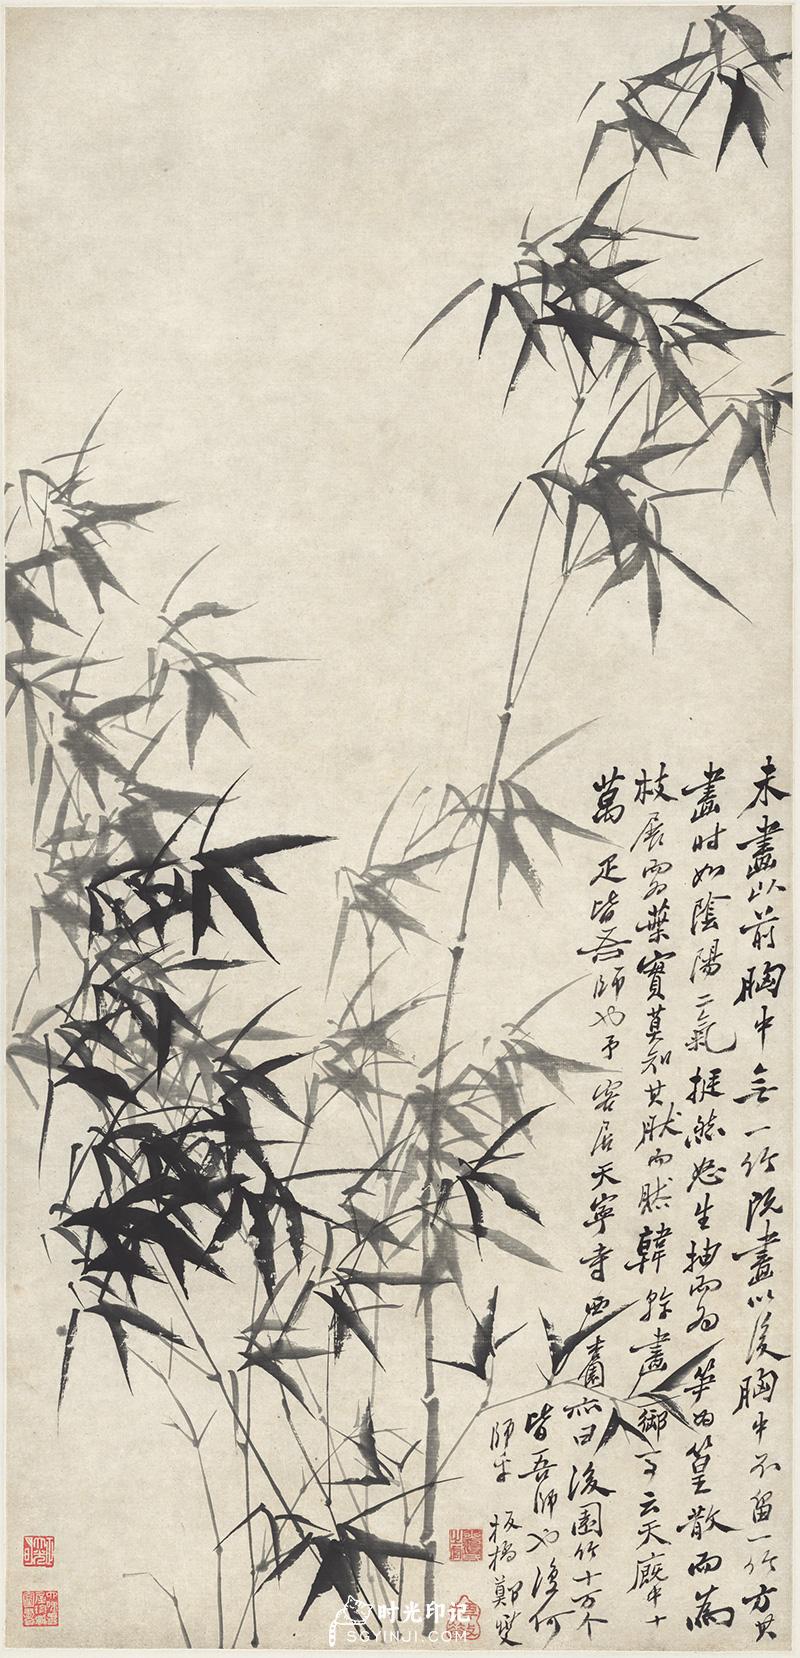 未畫以前胸中無一竹既畫以後胸中不留一竹方其
畫時如陰陽二氣挺然怒生抽而為笋為篁散而為
枝展而為葉實莫知其然而然韓幹畫御馬云天廐中十
萬疋皆吾師也予客居天寧寺西園亦曰後園竹十万个
皆吾師也復何
師乎 板橋鄭燮
时光印记
SGYINJI.COM